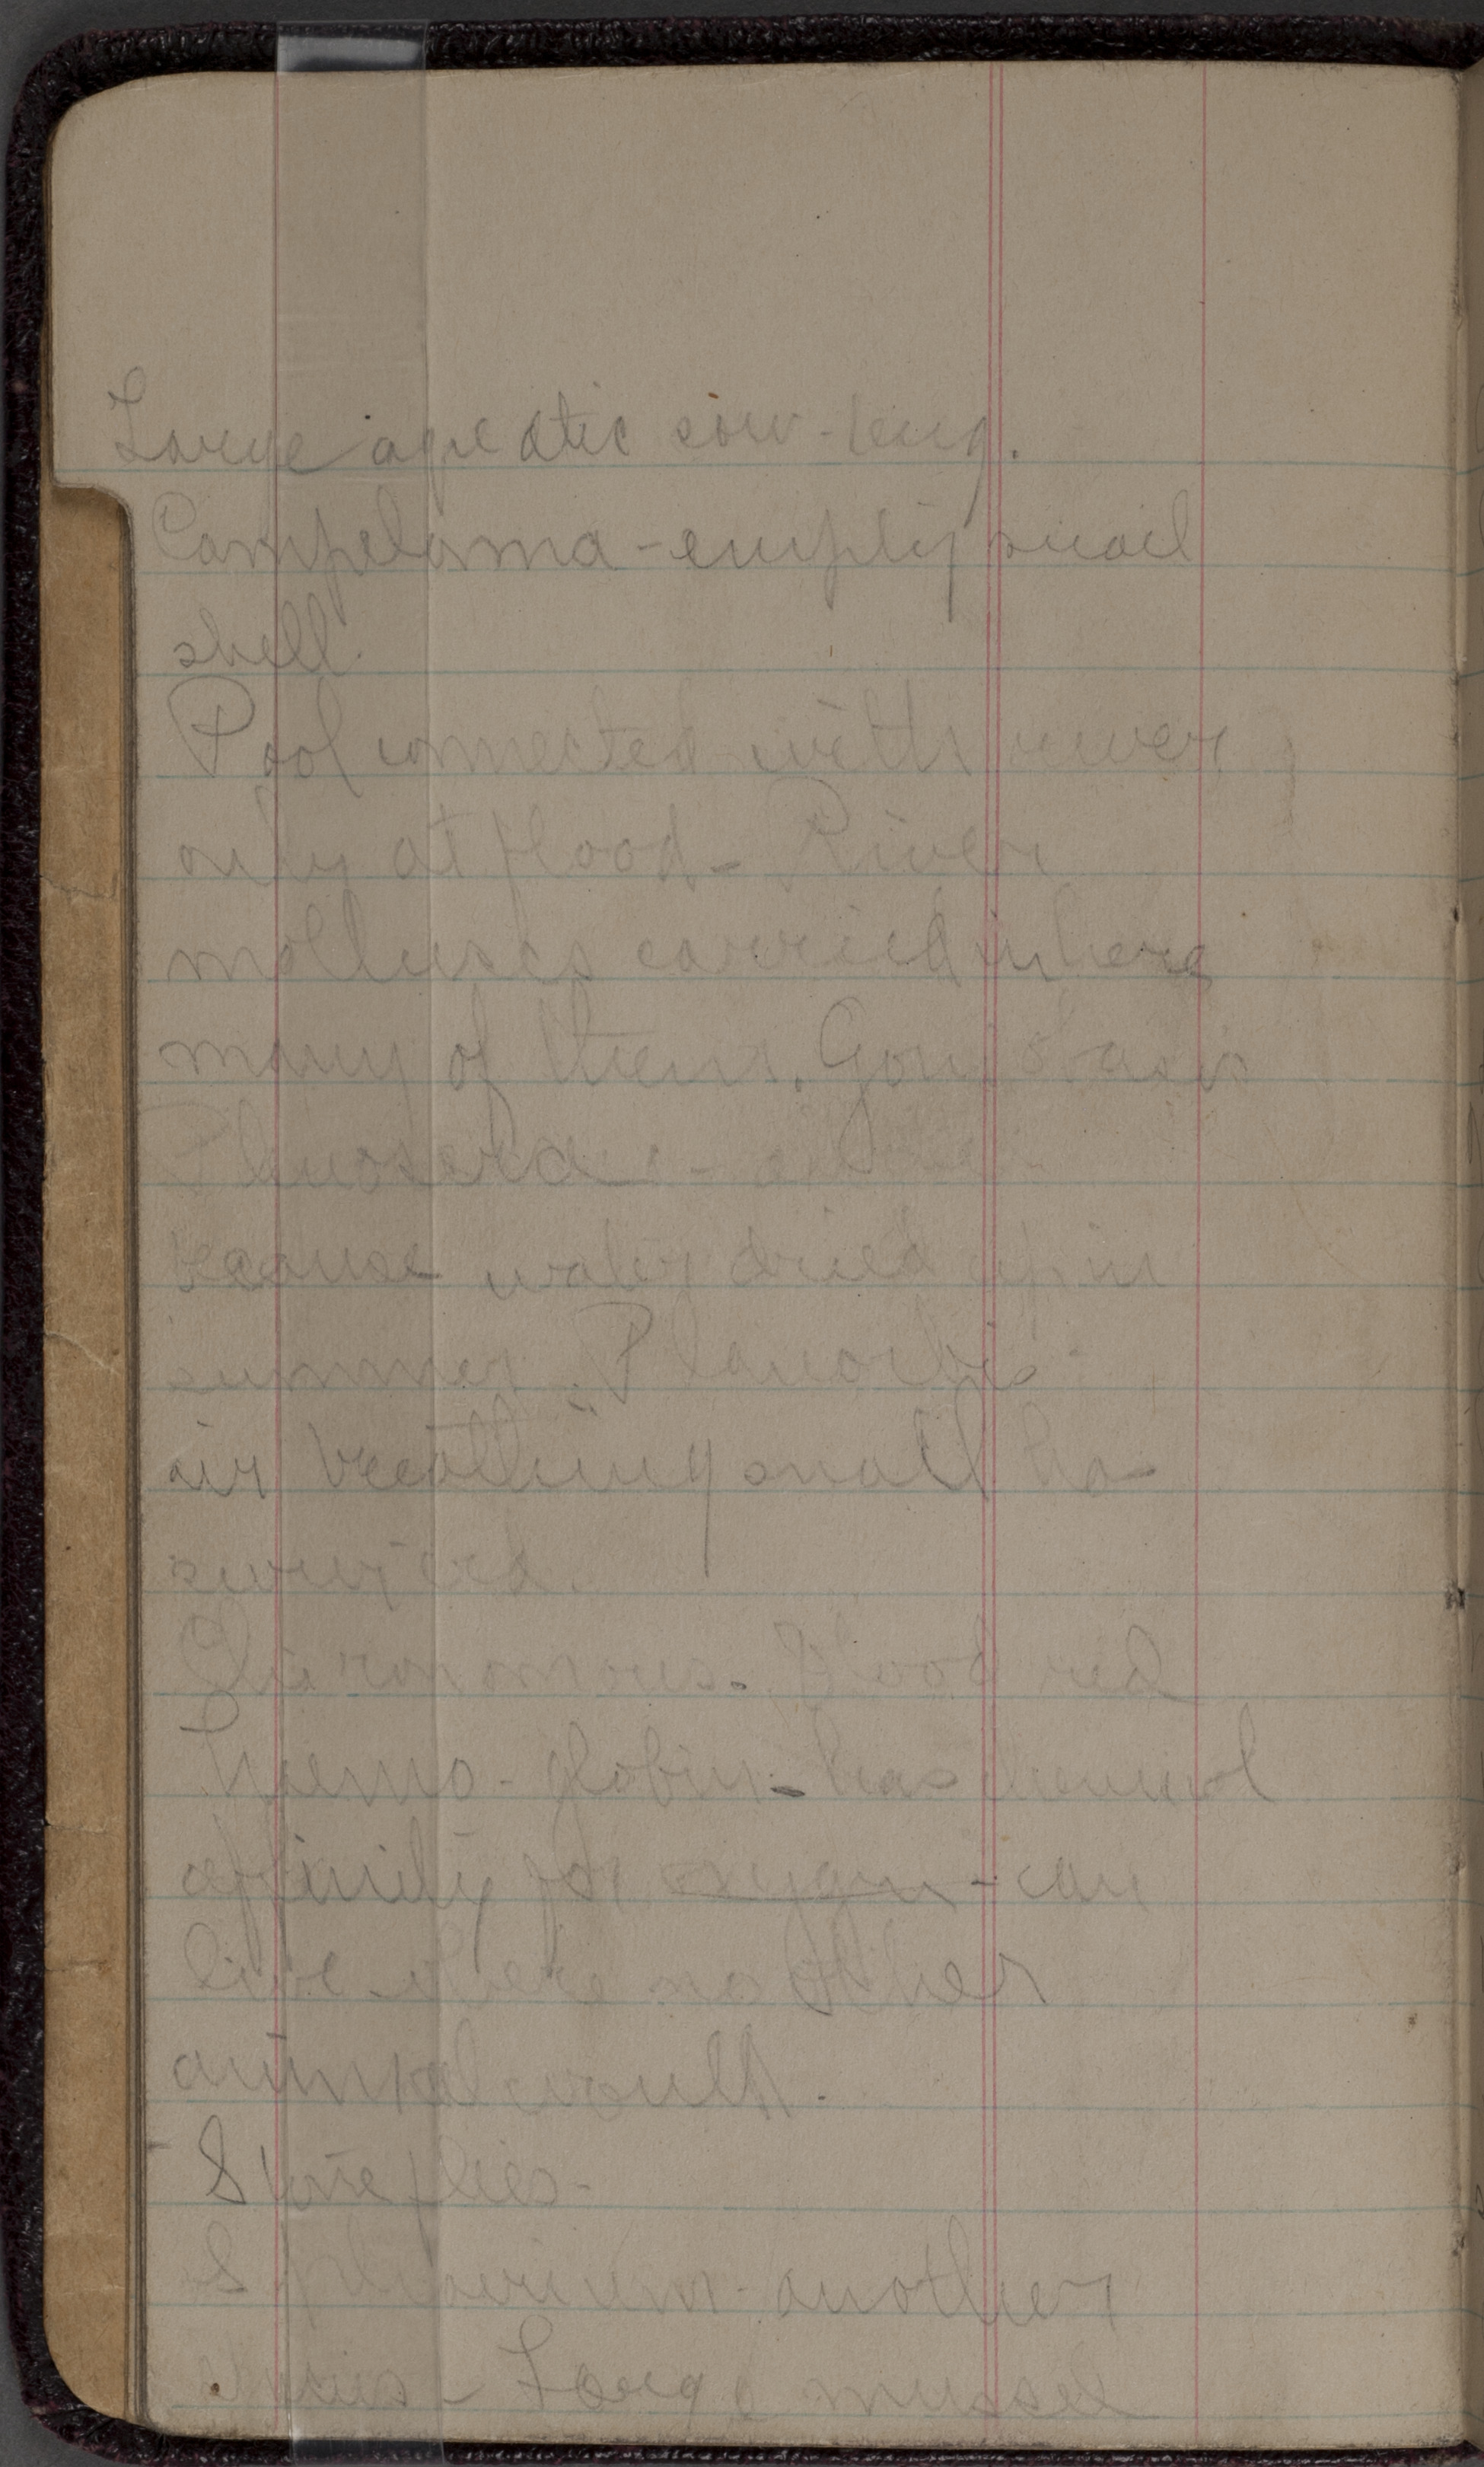 Large aquatic sow-bug.
Campeloma - empty snail
shell.
Pool connected with river
only at flood - River
molluscs carried in here
many of them. Goniobasis
Pleurocera -
because water dried up in
summer. Planorbis -
air breathing snail has
survived.
Chironomous. Blood red
haemo-globin - has chemical
affinity for oxygen - can
live where no other
animal would.
Stone flies -
Sphaerium - another
Large mussel